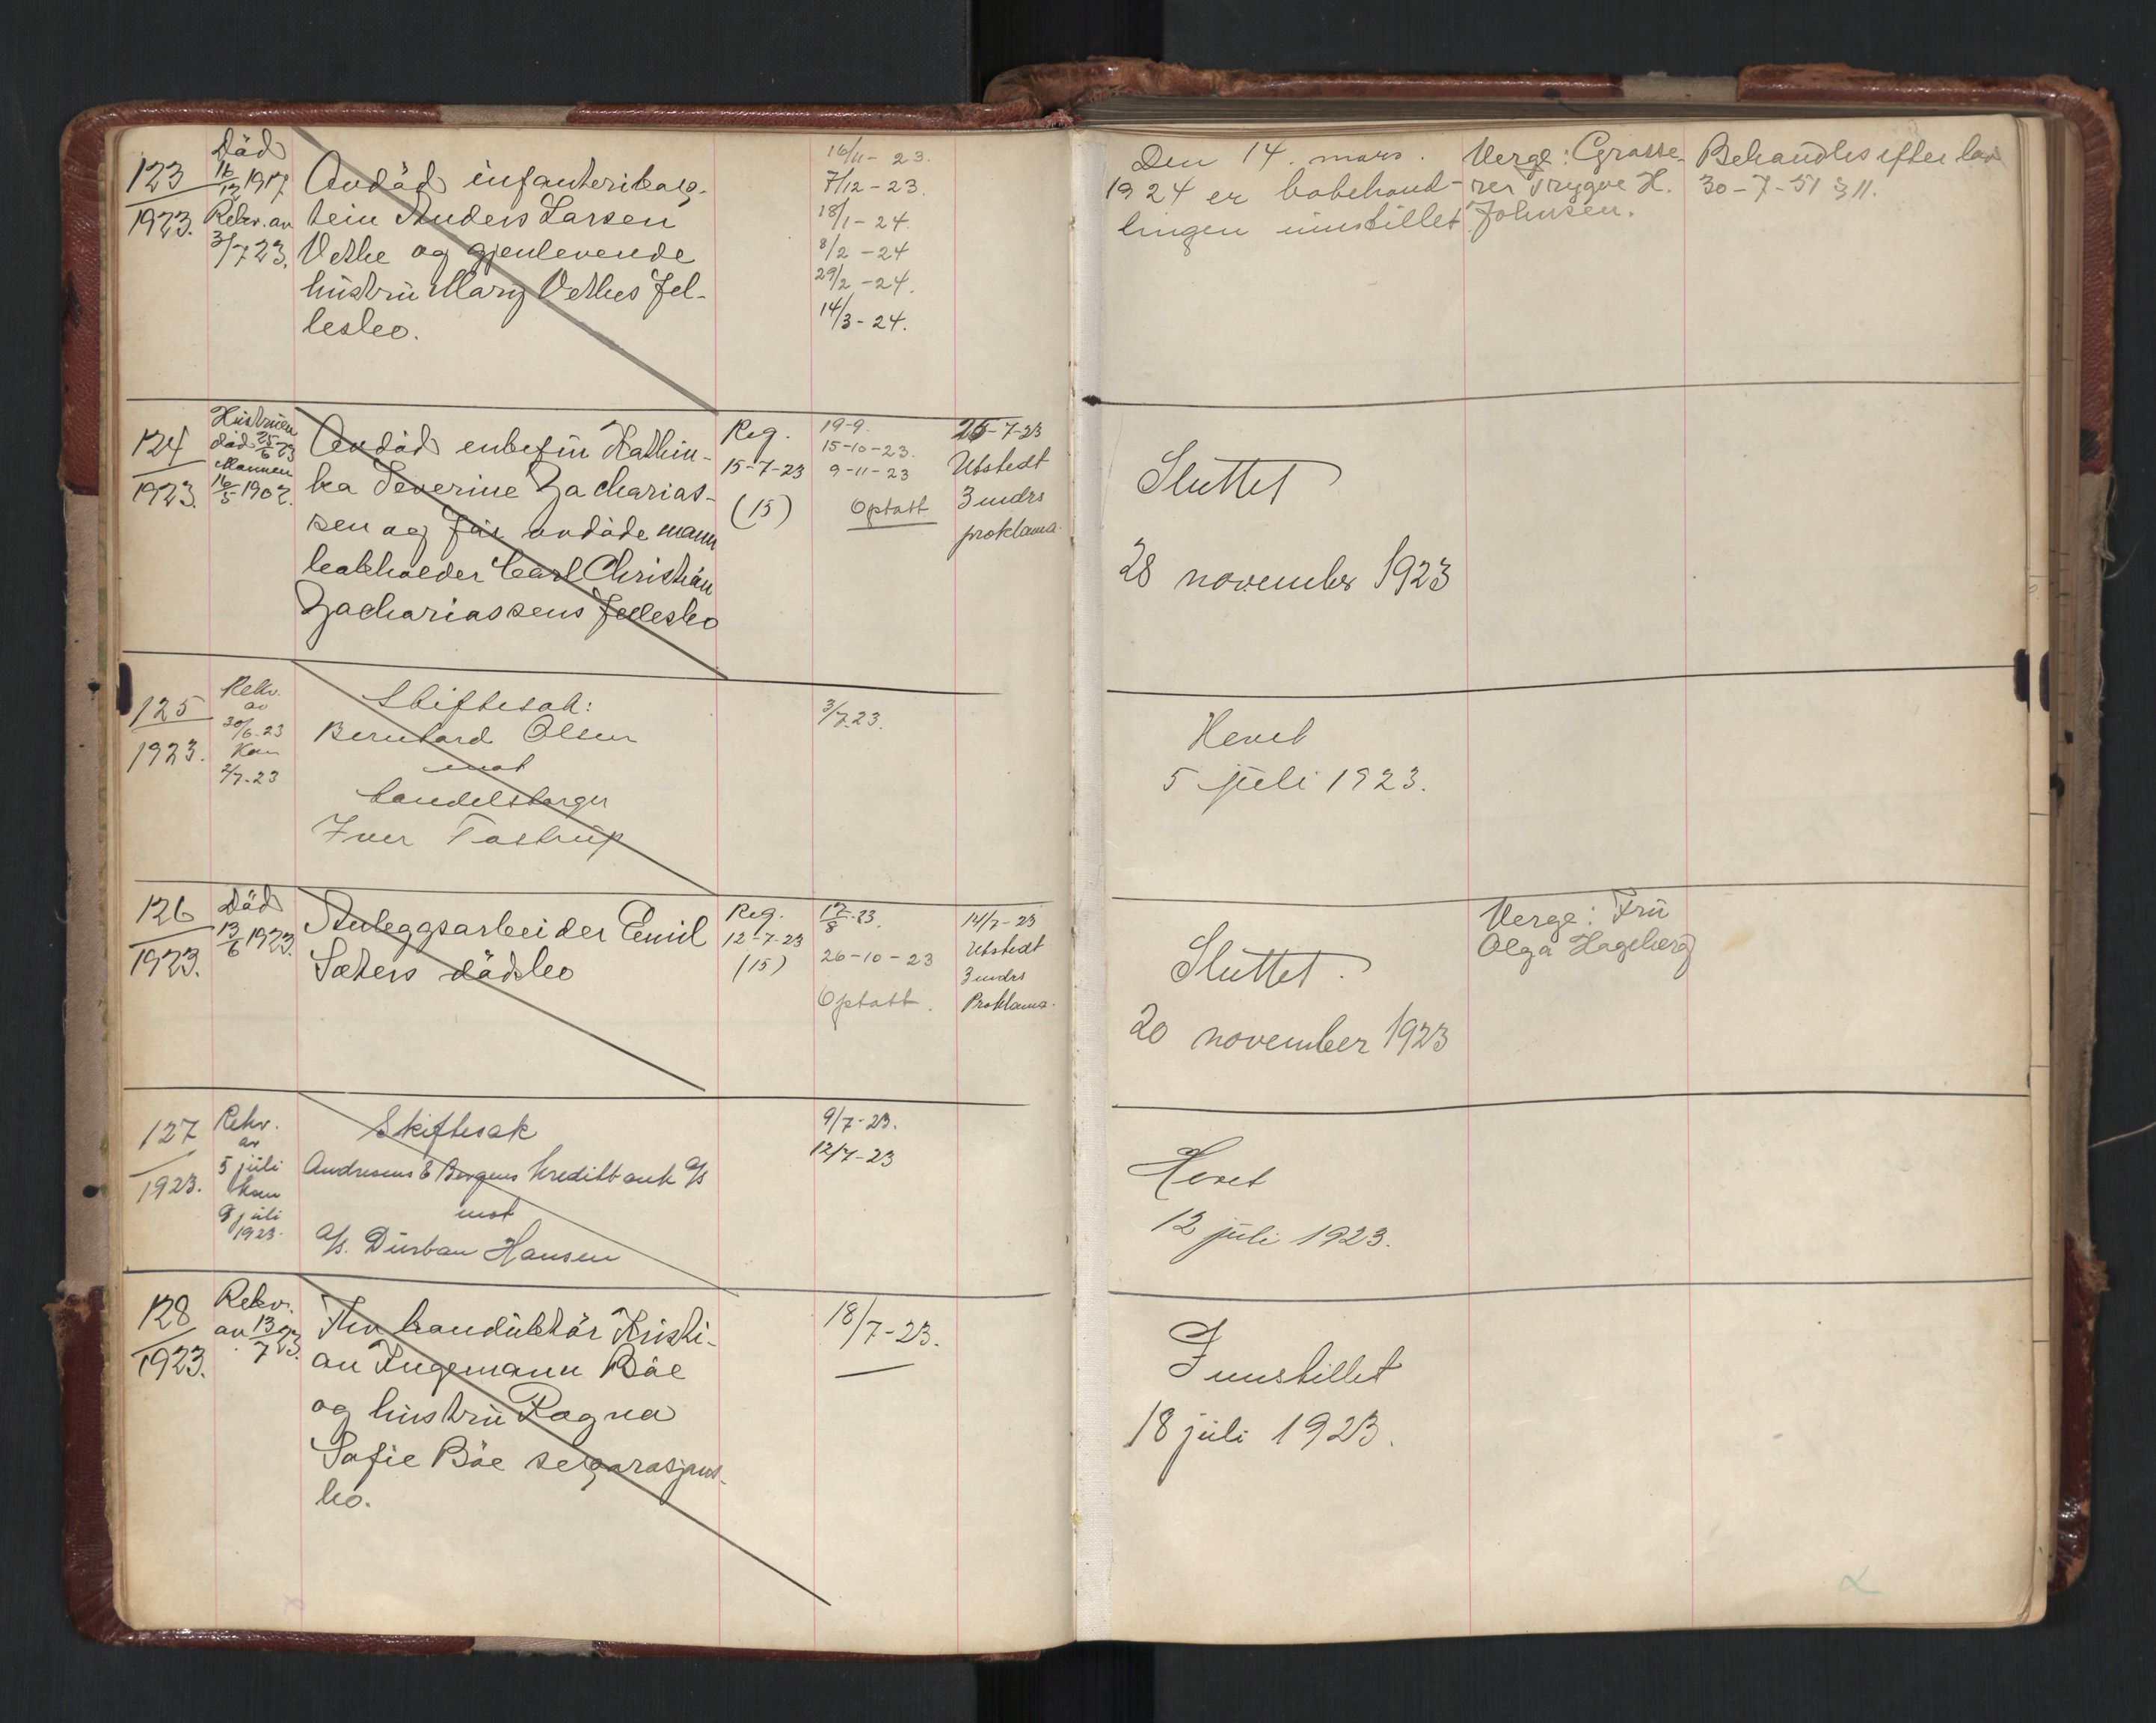 123
1923.
Död
16/12 1917
Rekv. av
3/7 23.
Avdöd infanterikap-
tein Anders Larsen
Vethe og gjenlevende
hüstrü Mary Vethes Fel-
lesbo.
16/11 - 23.
7/12 - 23.
18/1 - 24.
8/2 - 24
29/2 - 24.
14/3 - 24.
Den 14. mars.
1924 er bobehand-
lingen innstillet
Verge: Grosse-
rer Trygve H.
Johnsen.
Behandles efter lov
30-7-51 § 11.
124
1923.
Hüstrüen
död 25/6 23
Mannen
16/5 1902.
Avdöd enkefrü Kathin-
ka Severine Zacharias-
sen og för avdöde mann
bokholder Carl Christian
Zachariassens Fellesbo
Reg.
15-7-23
(15)
19-9.
15-10-23.
9-11-23
Optatt
25-7-23
Utstedt
3 mdrs
proklama.
Sluttet
28 november 1923
125
1923.
Rekv.
av
30/6-23
Kom
2/7-23
Skiftesak:
Bernhard Olsen
mot
handelsborger
Iver Tostrüp
3/7.23.
Hevet
5 jüli 1923.
126
1923.
Död
13/6 1923.
Anleggsarbeider Emil
Sæters dödsbo
Reg.
12-7-23
(15)
17/8-23.
26-10-23
Optatt.
14/7-23
Utstedt
3 mdrs
Proklama.
Sluttet.
20 november 1923
Verge: Frü
Olga Hageberg
127
1923.
Rekv.
av
5 jüli
kom
9 jüli
1923.
Skiftesak
Andresens & Bergens Kreditbank A/S
mot
A/S. Dürban Hansen
9/7-23.
12/7-23
Hevet
12 jüli 1923.
128
1923.
Rekv.
av 13/7 23.
Fhv kondüktör Kristi-
an Ingemann Böe
og hüstrü Ragna
Sofie Böe separasjons-
bo.
18/7-23.
Innstillet
18 jüli 1923.